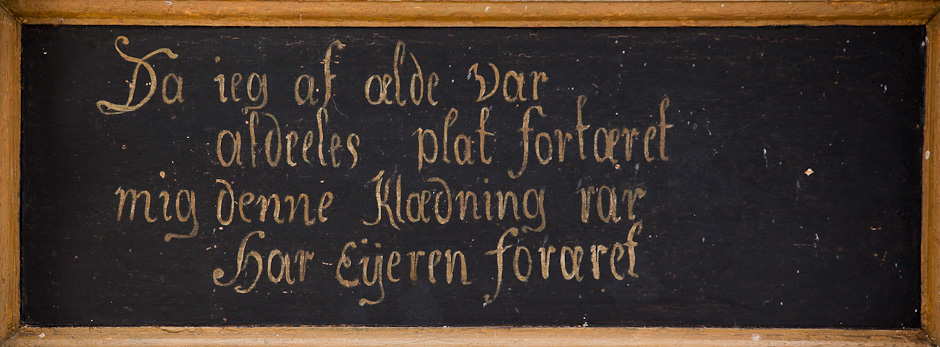 Da ieg af ælde var
aldreeles plat fortæret
mig denne Klædning rar
Har Eijeren foræret